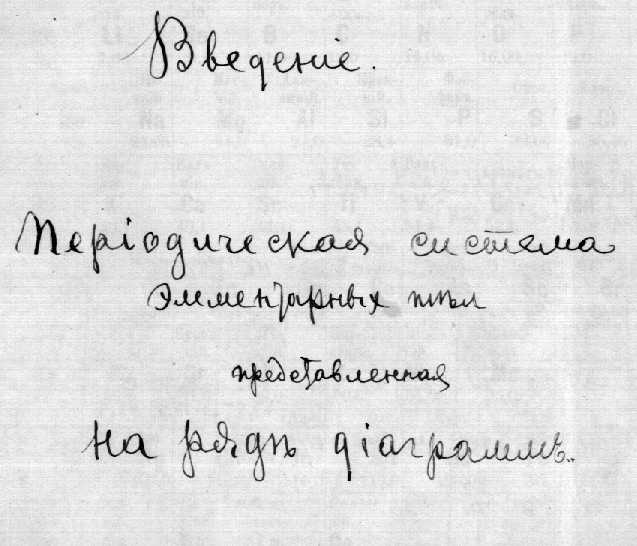 Введенiе.
Перiодическая система
элементарных тѣл
представленная
на рядѣ дiаграммъ.